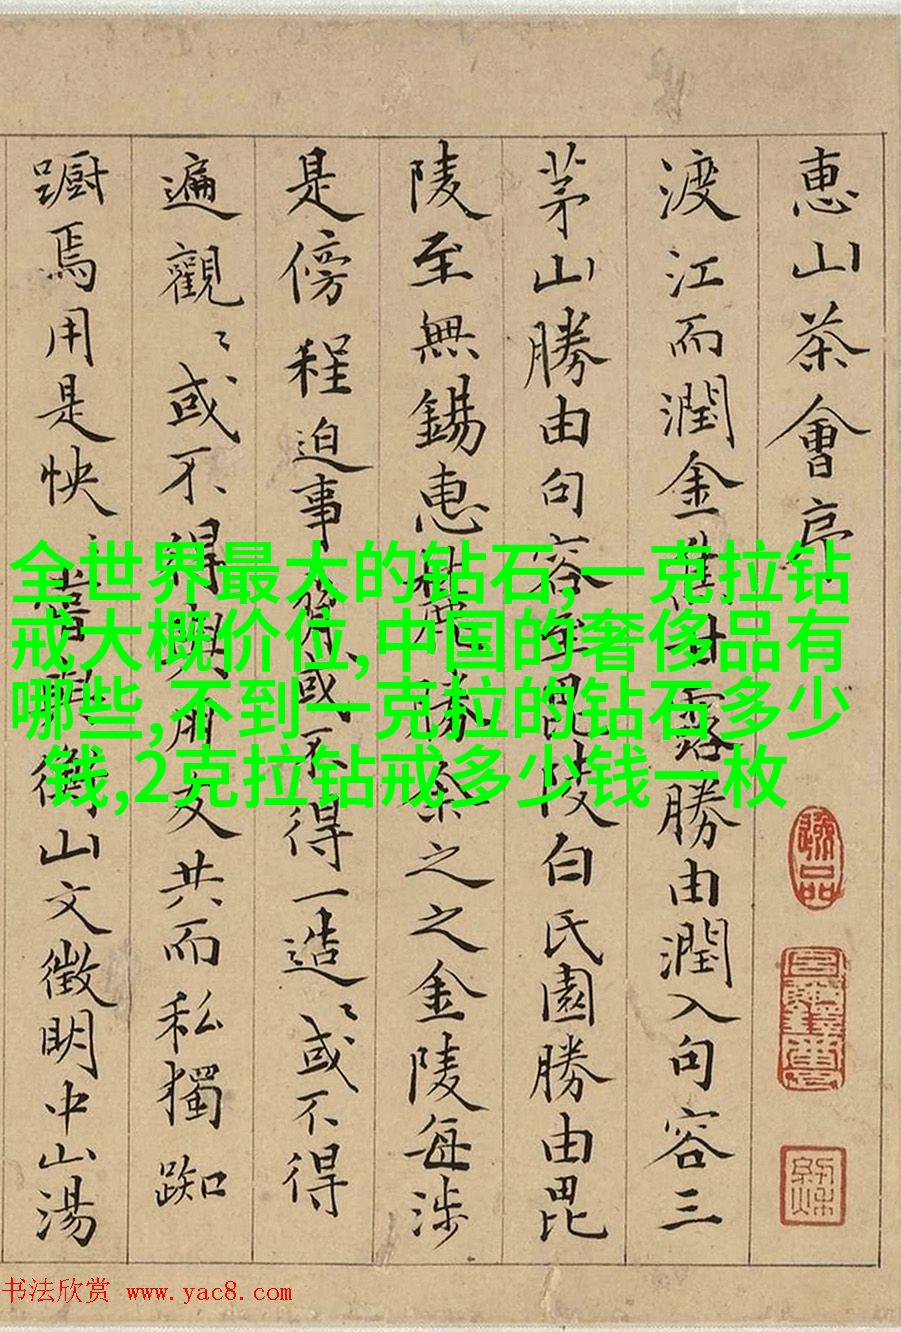 惠山茶會序
渡江而潤金焦甘露勝由潤入句容三
茅山勝由句容至毘陵白氏園勝由毘
陵至無錫惠麓勝余之之金陵每涉
是傍程迫事務或不得一造〻或不得
遍觀〻或不得朋友共而私獨踟
躕焉用是怏〻 衡山文徵明中山湯
全世界最大的钻石,一克拉钻
戒大概价位,中国的奢侈品有
哪些,不到一克拉的钻石多少
钱,2克拉钻戒多少钱一枚
书法欣赏 www.yac8.com